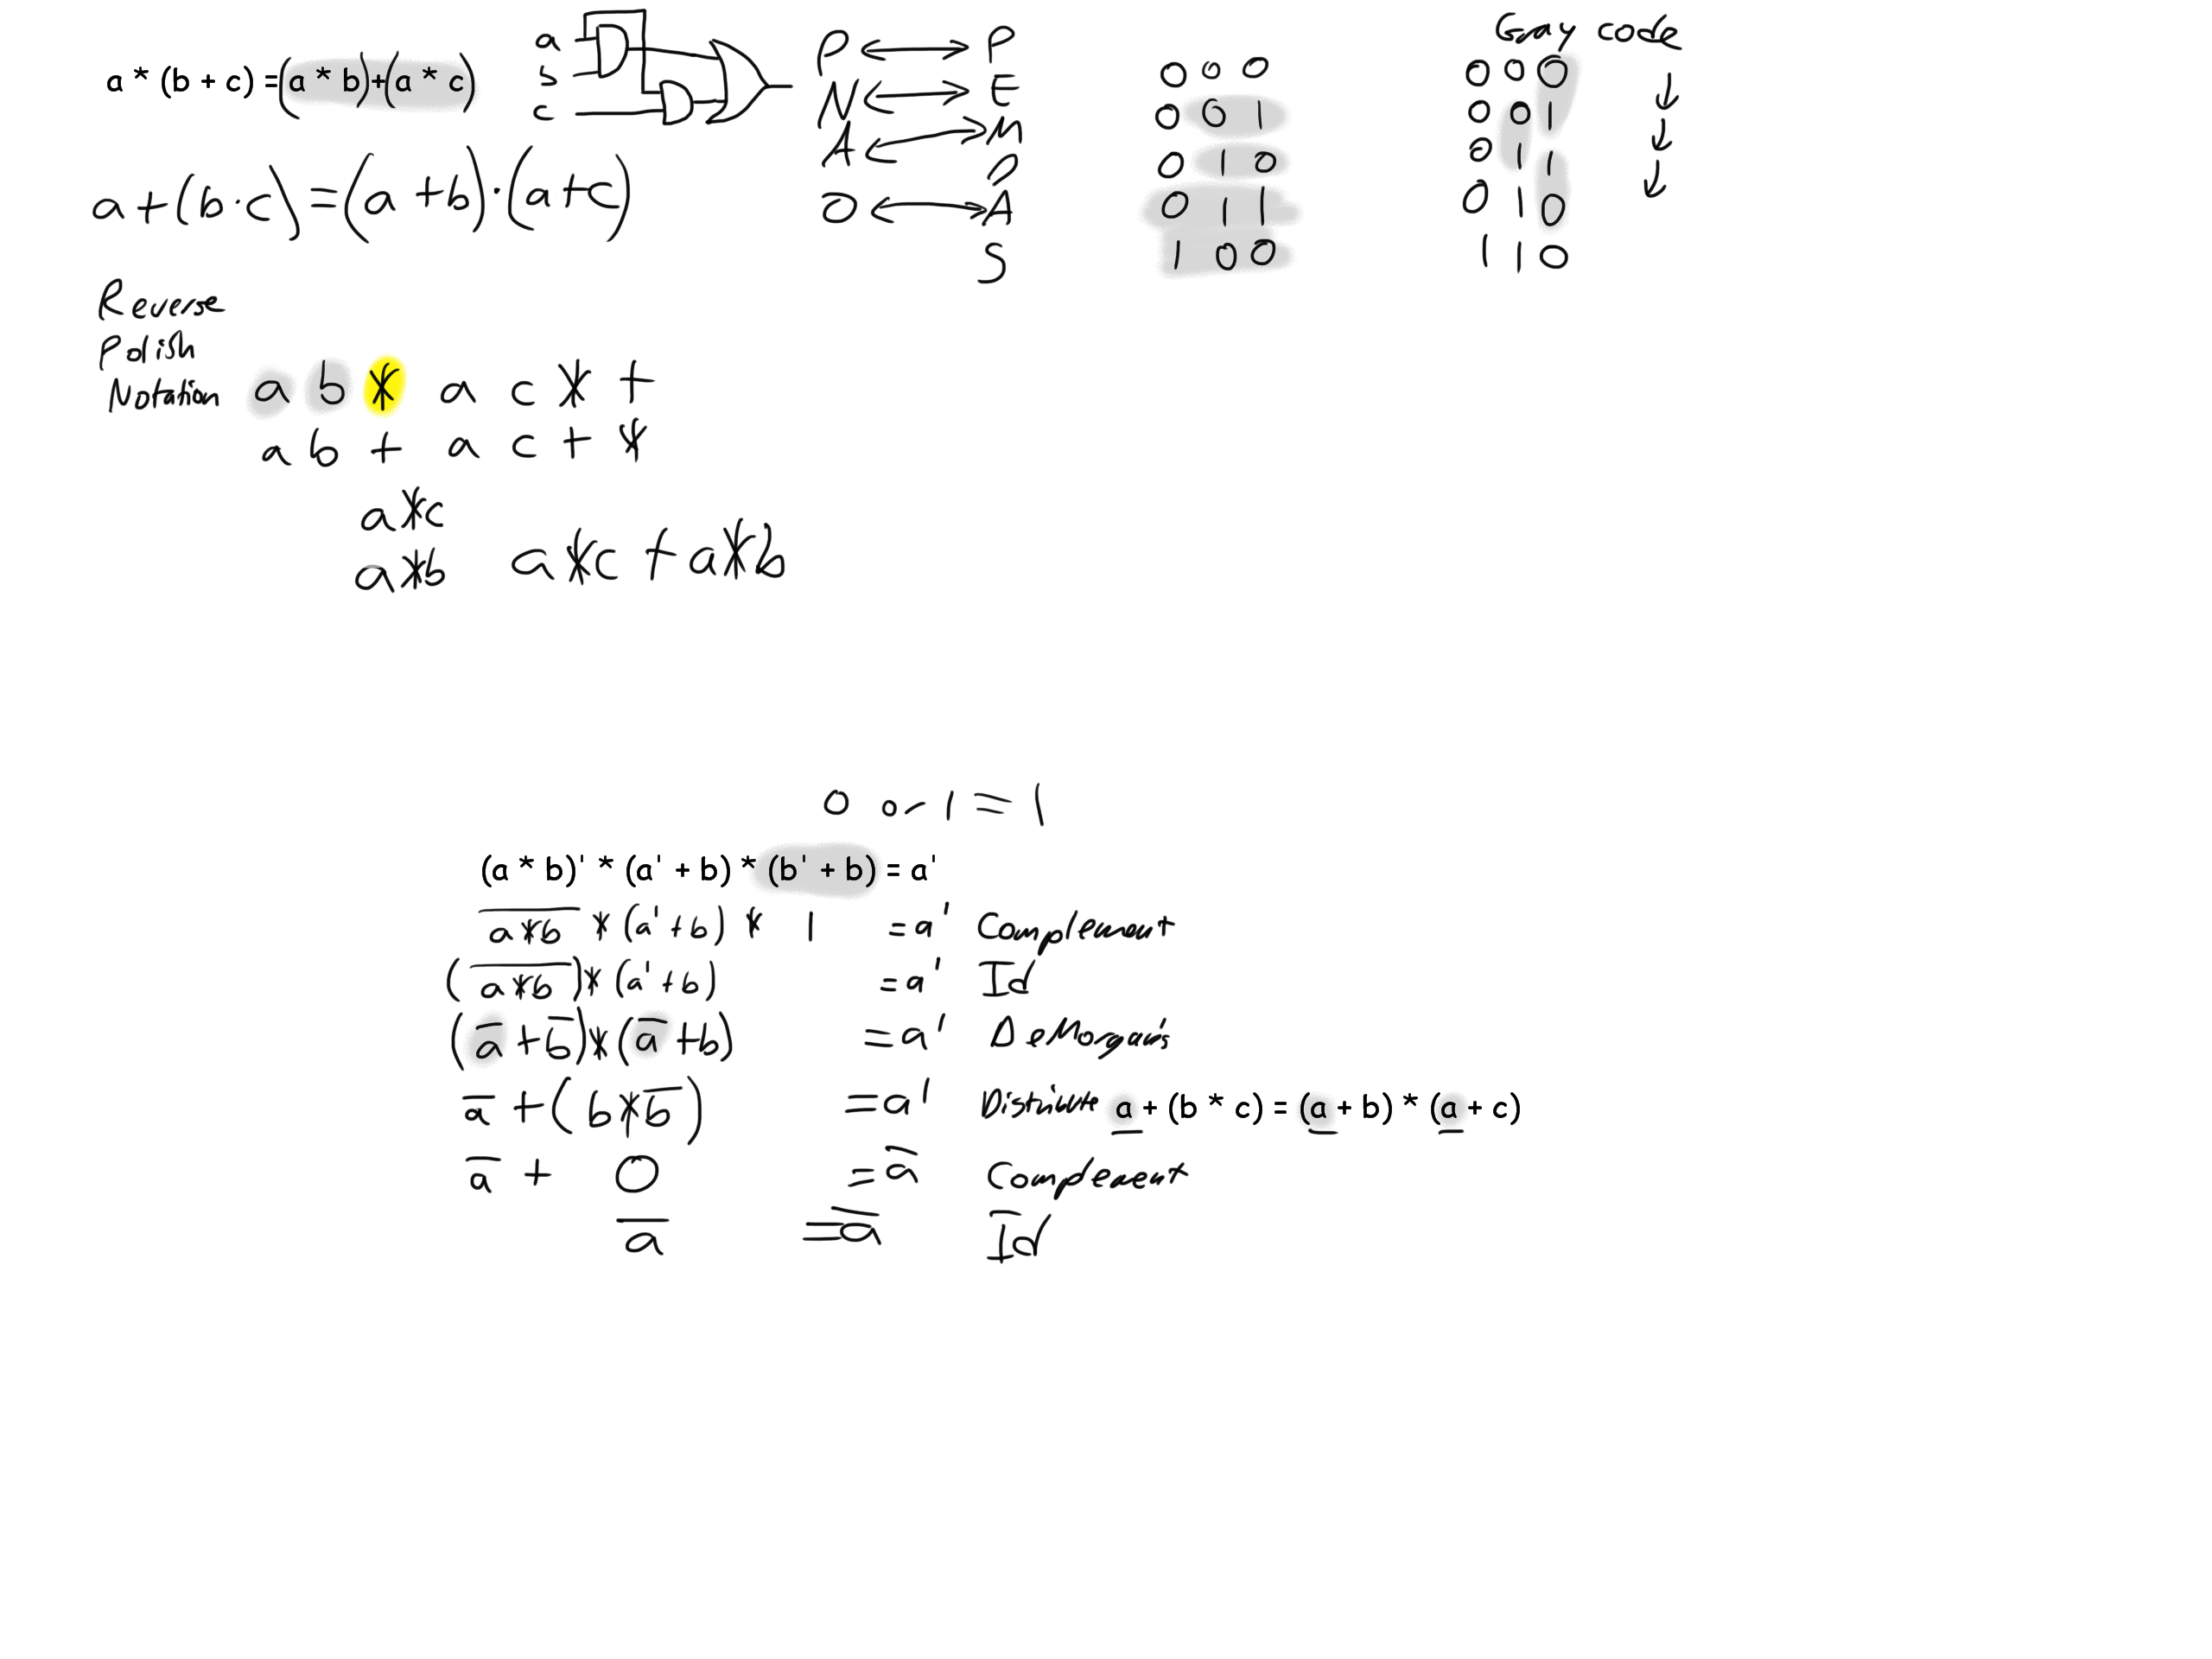 a * (b + c) =(a * b)+(a * c)
a
b
c
a+(b·c)=(a+b)·(a+c)
P ↔ P
N ↔ E
A ↔ M
D
O ↔ A
S
0 0 0
0 0 1
0 1 0
0 1 1
1 0 0
Gray code
0 0 0
0 0 1
0 1 1
0 1 0
1 1 0
Reverse
Polish
Notation a b * a c * +
a b + a c + *
a*c
a*b a*c + a*b
0 or 1 = 1
(a * b)' * (a' + b) * (b' + b) = a'
a̅*̅b̅ * (a' + b) * 1 = a' Complement
(a̅*̅b̅)* (a' + b) = a' Id
(a̅ + b̅)*(a̅ + b) = a' DeMorgan's
a̅ + (b*b̅) = a' Distribute a + (b * c) = (a + b) * (a + c)
a̅ + 0 = a̅ Complement
a̅ = a̅ Id